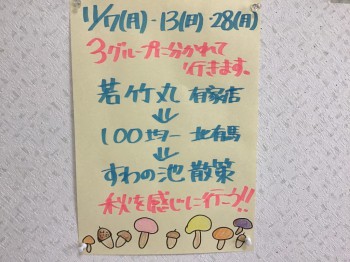 11/7(月)・13(日)・28(月)
3グループに分かれて
行きます。
若竹丸 有家店
↓
100均一 北有馬
↓
すわの池 散策
秋を感じに行こう!!